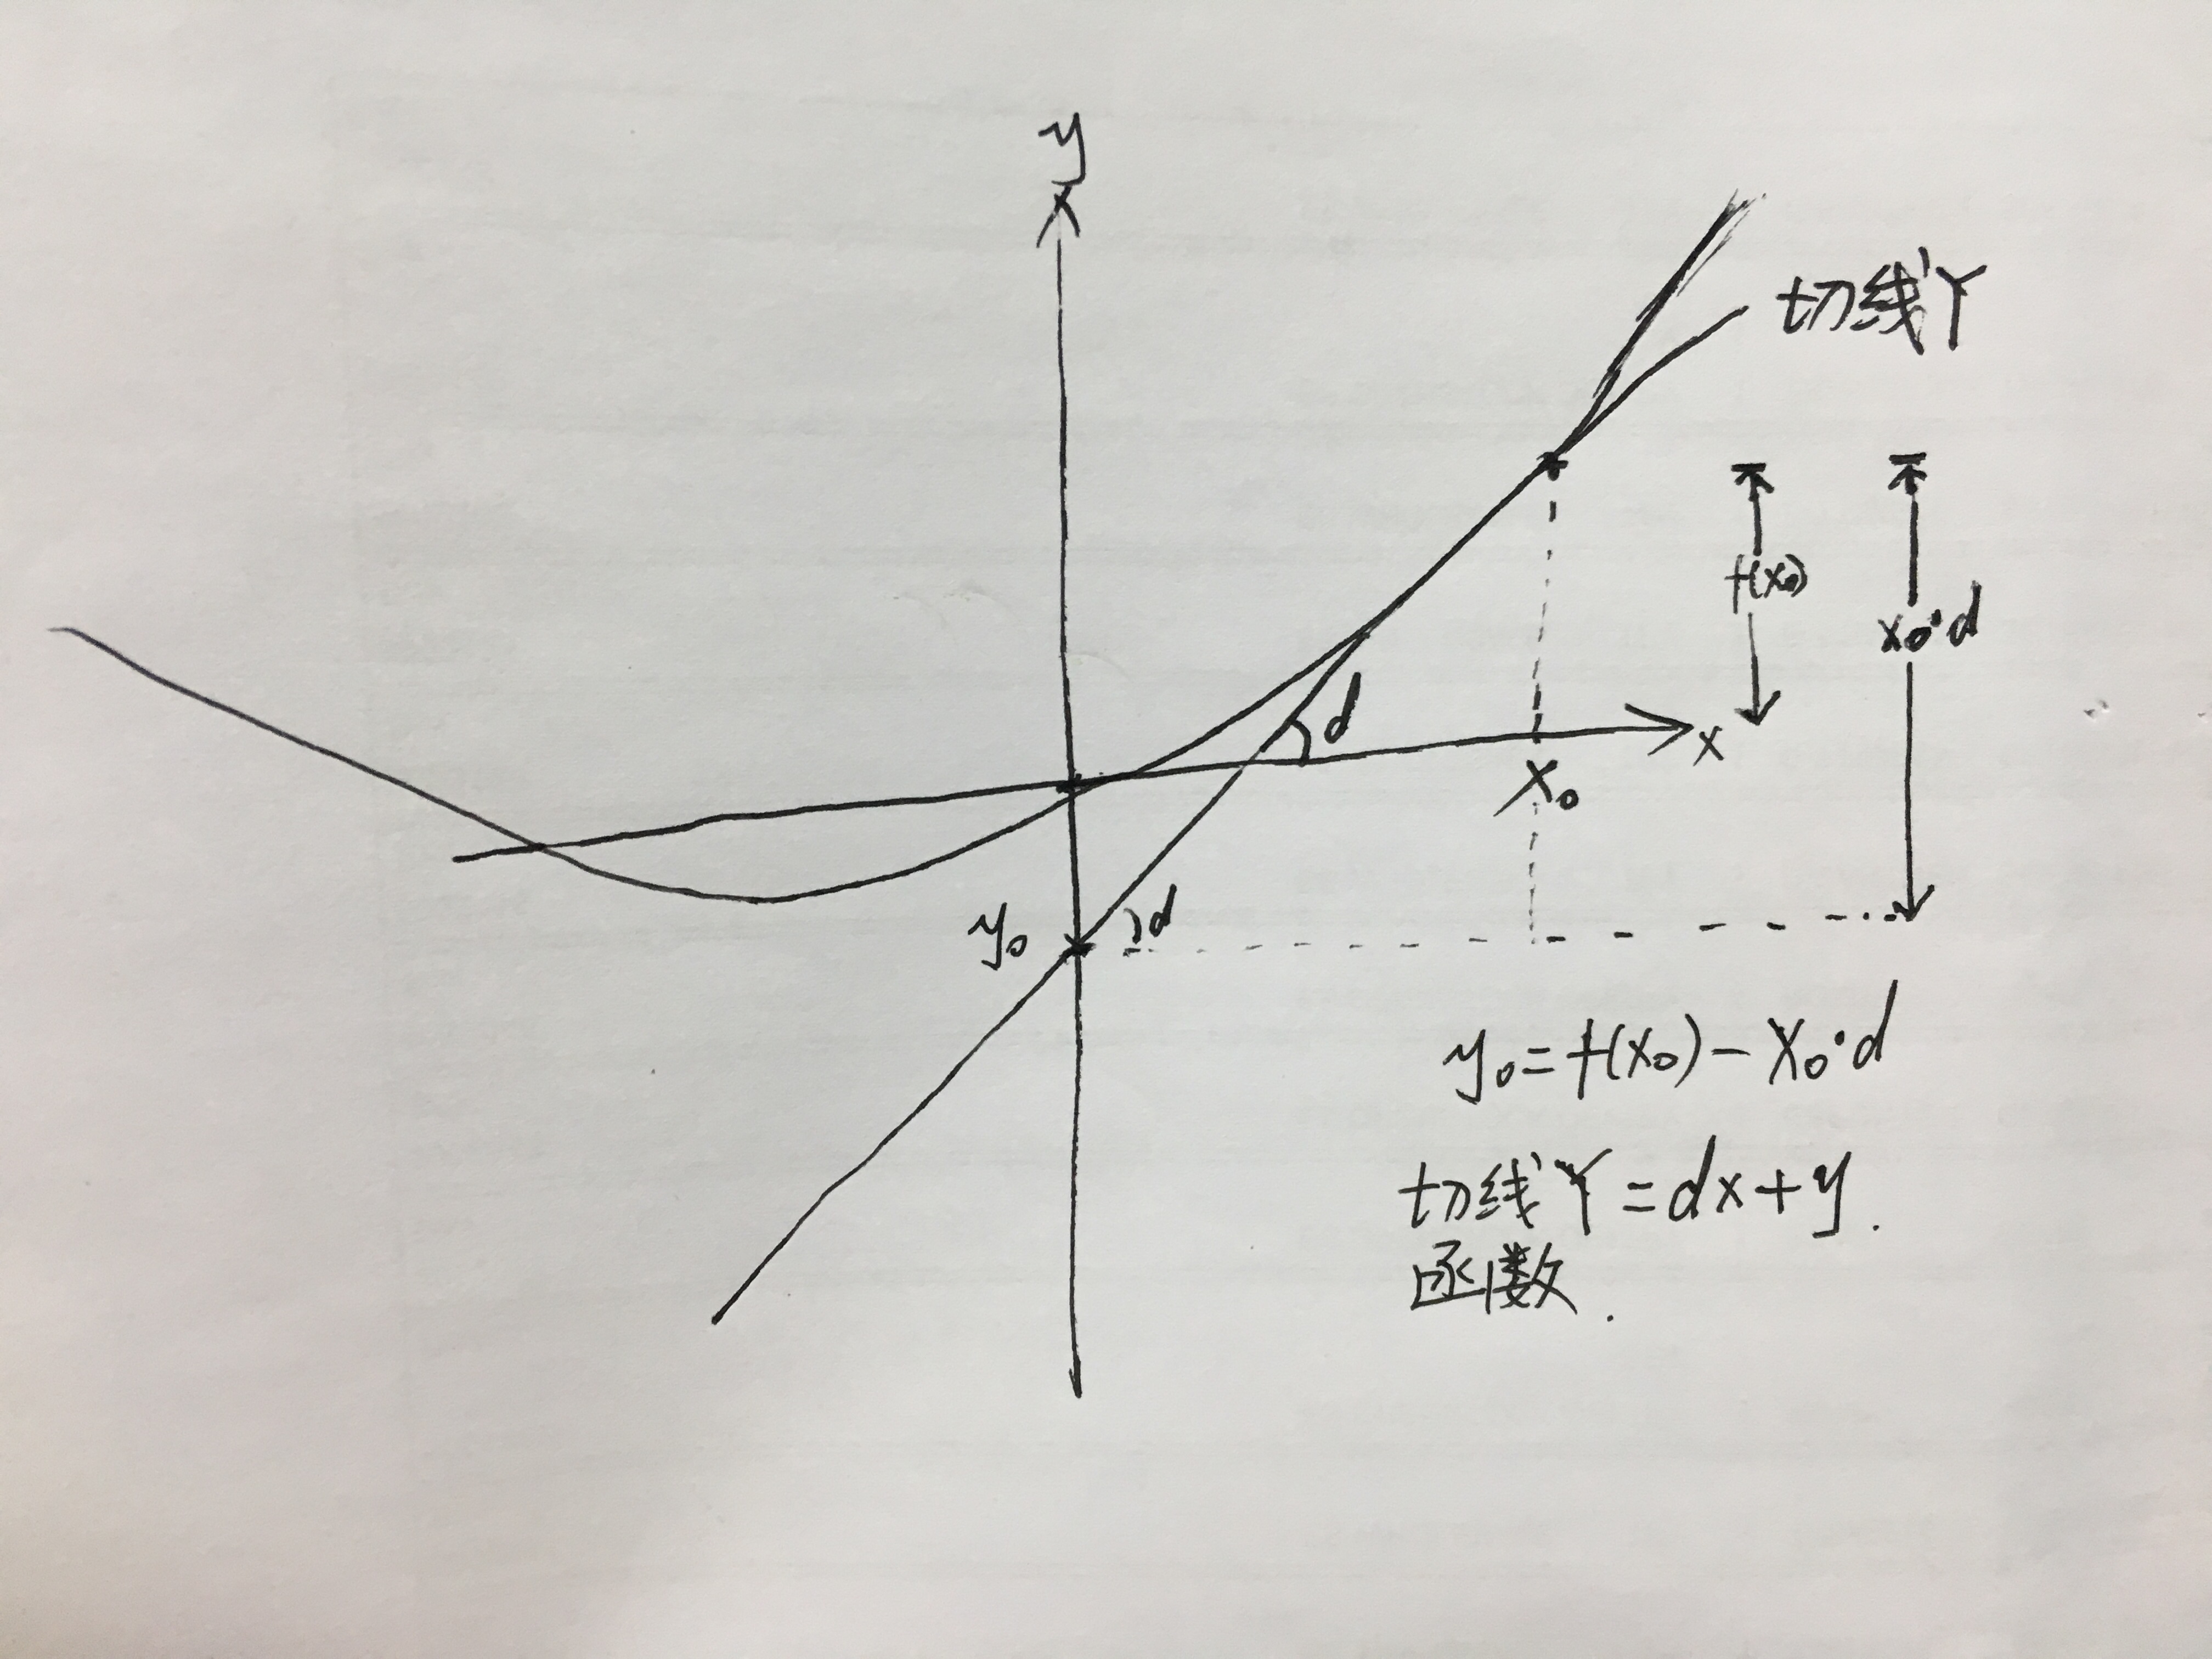 y
切线Y
f(x₀)
x₀·d
d
x
x₀
y₀
d
y₀=f(x₀)-x₀·d
切线Y=dx+y.
函数.